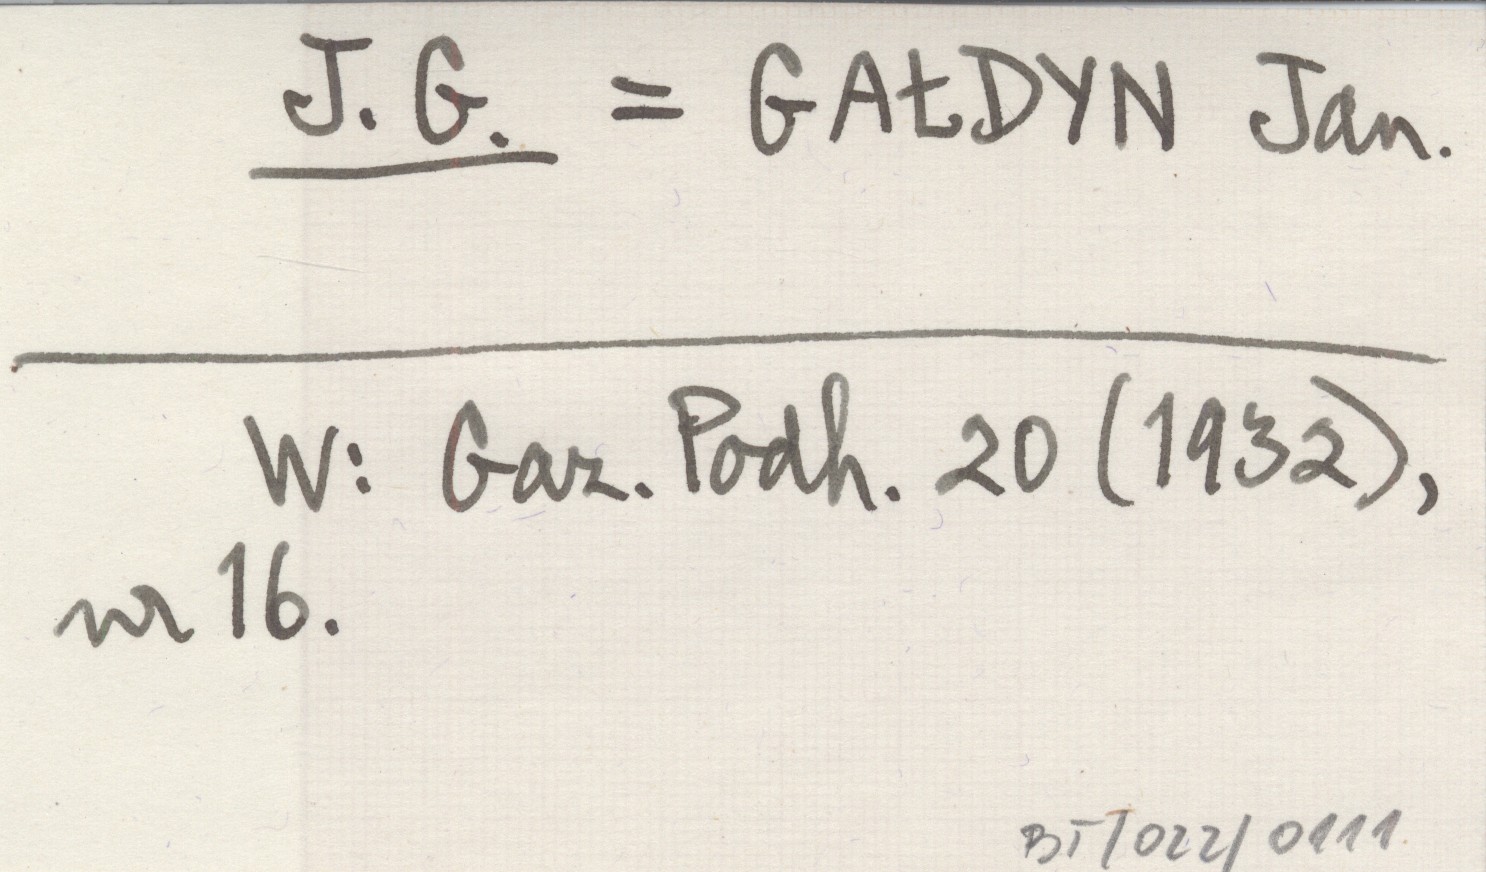 J. G. = GAŁDYN Jan.
W: Gaz. Podh. 20 (1932),
nr 16.
BT/022/0111